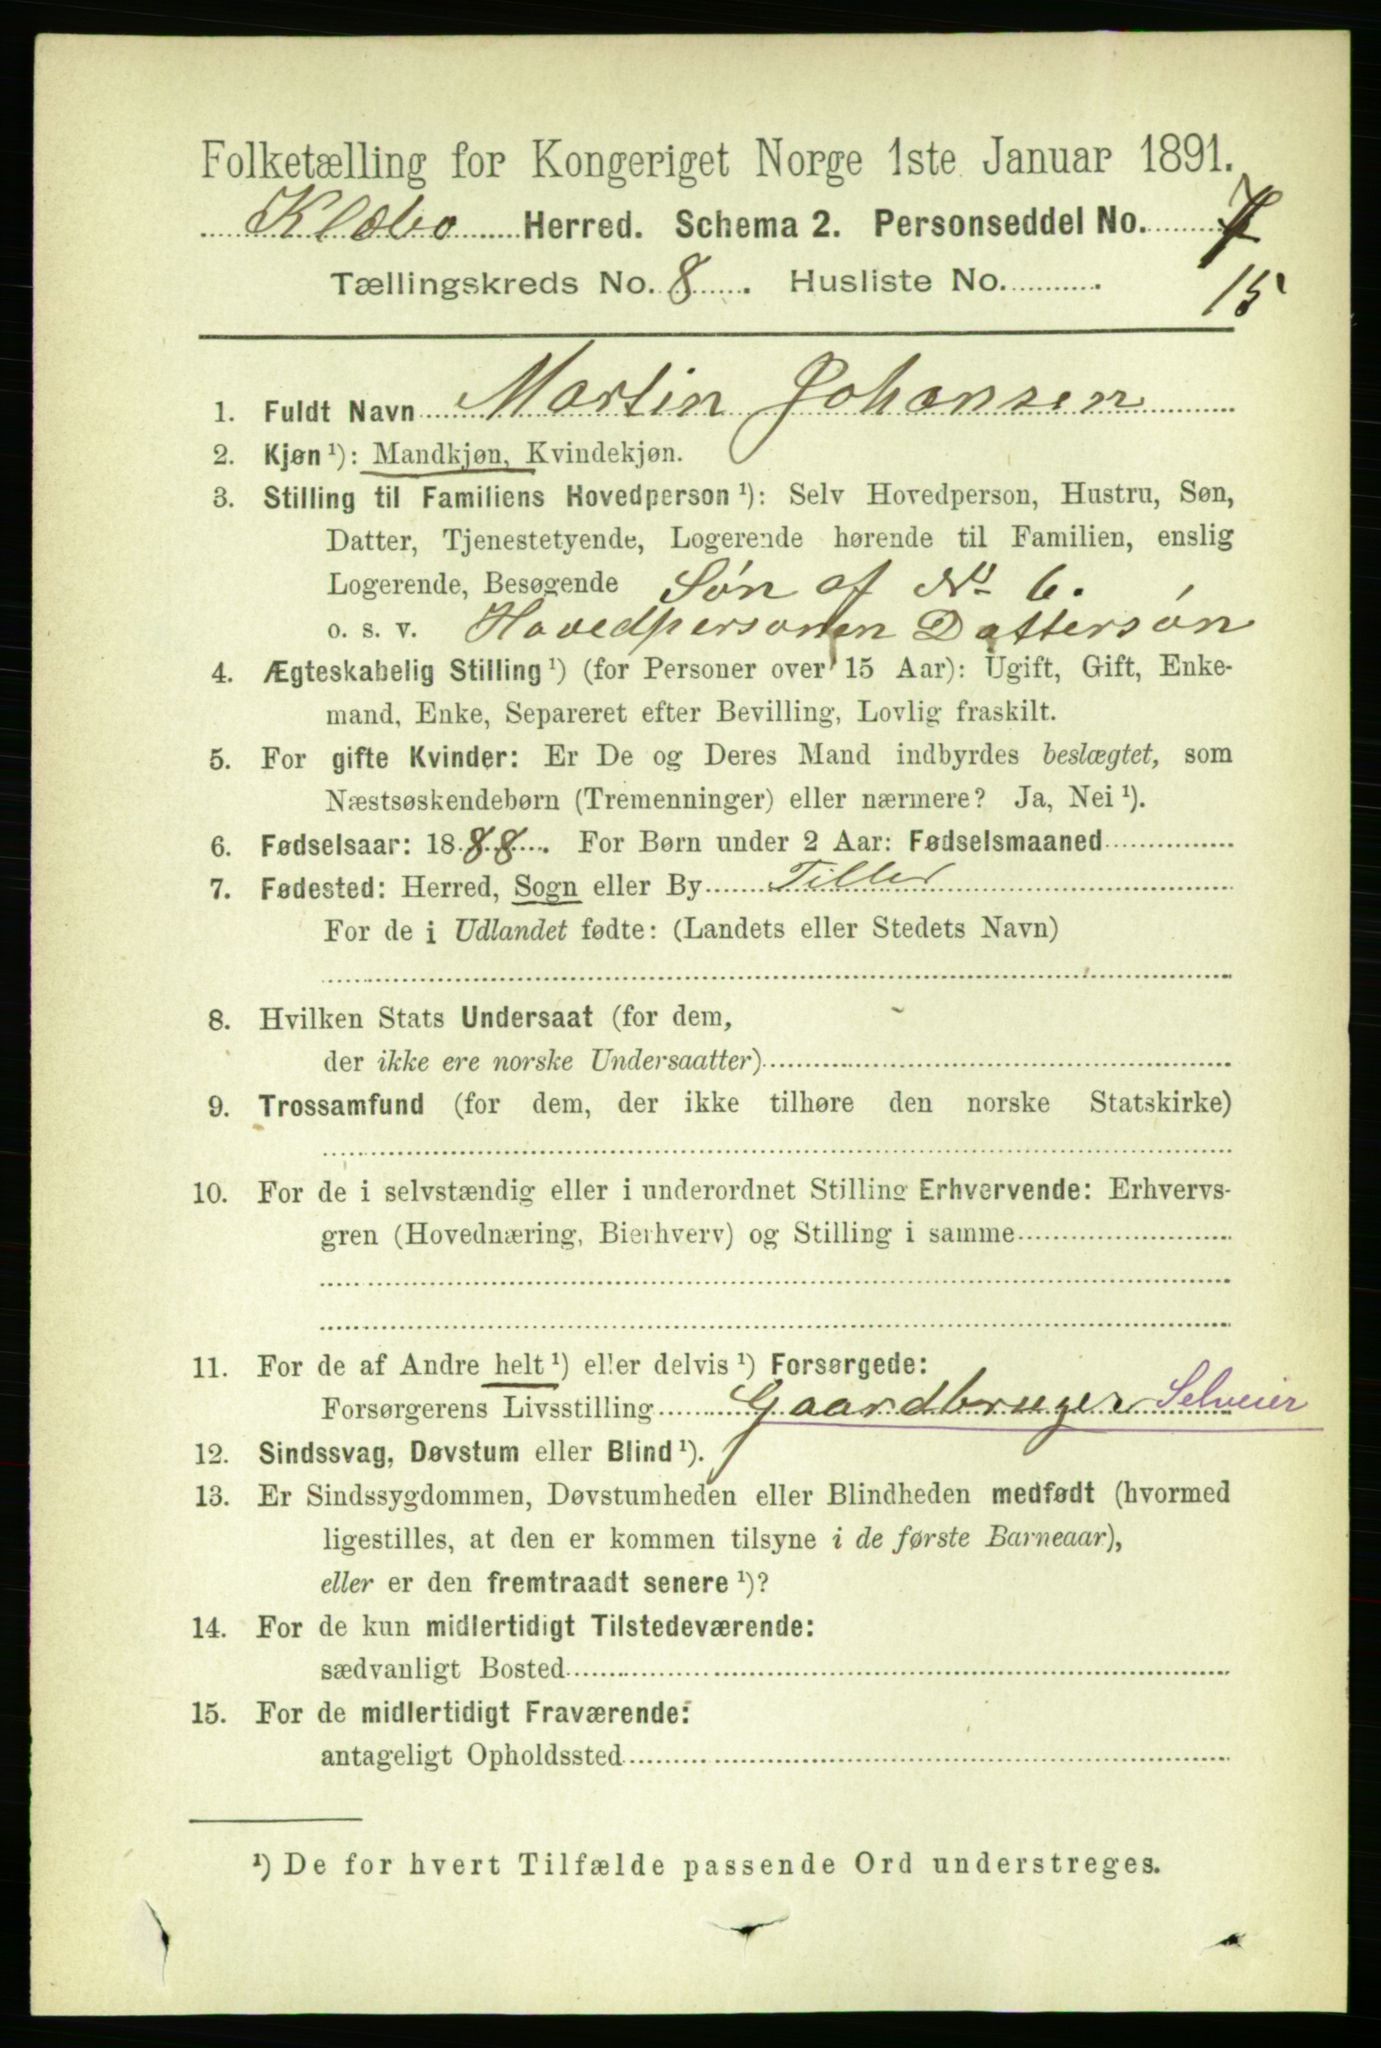 Folketælling for Kongeriget Norge 1ste Januar 1891.
Klæbo Herred. Schema 2. Personseddel No. 7
Tællingskreds No. 8. Husliste No. 15
1. Fuldt Navn Martin Johansen
2. Kjøn ¹): Mandkjøn, Kvindekjøn.
3. Stilling til Familiens Hovedperson ¹): Selv Hovedperson, Hustru, Søn,
Datter, Tjenestetyende, Logerende hørende til Familien, enslig
Logerende, Besøgende Søn af No 6.
o. s. v. Hovedpersonen Dattersøn
4. Ægteskabelig Stilling ¹) (for Personer over 15 Aar): Ugift, Gift, Enke-
mand, Enke, Separeret efter Bevilling, Lovlig fraskilt.
5. For gifte Kvinder: Er De og Deres Mand indbyrdes beslægtet, som
Næstsøskendebørn (Tremenninger) eller nærmere? Ja, Nei ¹).
6. Fødselsaar: 1888. For Børn under 2 Aar: Fødselsmaaned
7. Fødested: Herred, Sogn eller By Tiller
For de i Udlandet fødte: (Landets eller Stedets Navn)
8. Hvilken Stats Undersaat (for dem,
der ikke ere norske Undersaatter)
9. Trossamfund (for dem, der ikke tilhøre den norske Statskirke)
10. For de i selvstændig eller i underordnet Stilling Erhvervende: Erhvervs-
gren (Hovednæring, Bierhverv) og Stilling i samme
11. For de af Andre helt ¹) eller delvis ¹) Forsørgede:
Forsørgerens Livsstilling Gaardbruger Selveier
12. Sindssvag, Døvstum eller Blind ¹).
13. Er Sindssygdommen, Døvstumheden eller Blindheden medfødt (hvormed
ligestilles, at den er kommen tilsyne i de første Barneaar),
eller er den fremtraadt senere ¹)?
14. For de kun midlertidigt Tilstedeværende:
sædvanligt Bosted
15. For de midlertidigt Fraværende:
antageligt Opholdssted
¹) De for hvert Tilfælde passende Ord understreges.